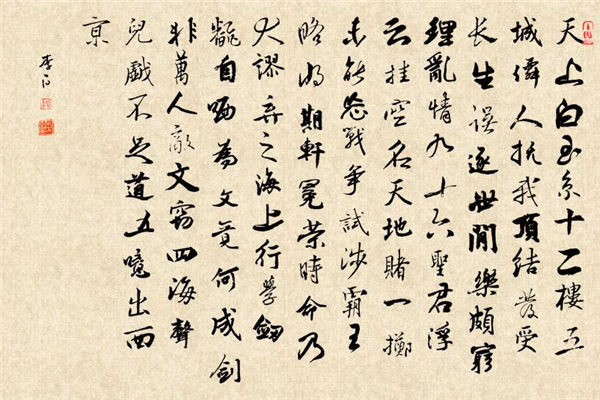 天上白玉京十二樓五
城僊人抚我頂结發受
长生误逐世間樂頗窮
理亂情九十六聖君浮
云挂空名天地賭一擲
未能忘戰争試涉霸王
略将期軒冕榮時命乃
大謬弃之海上行學劔
翻自哂為文竟何成剑
非萬人敵文窃四海聲
兒戲不足道五噫出西
京
李白